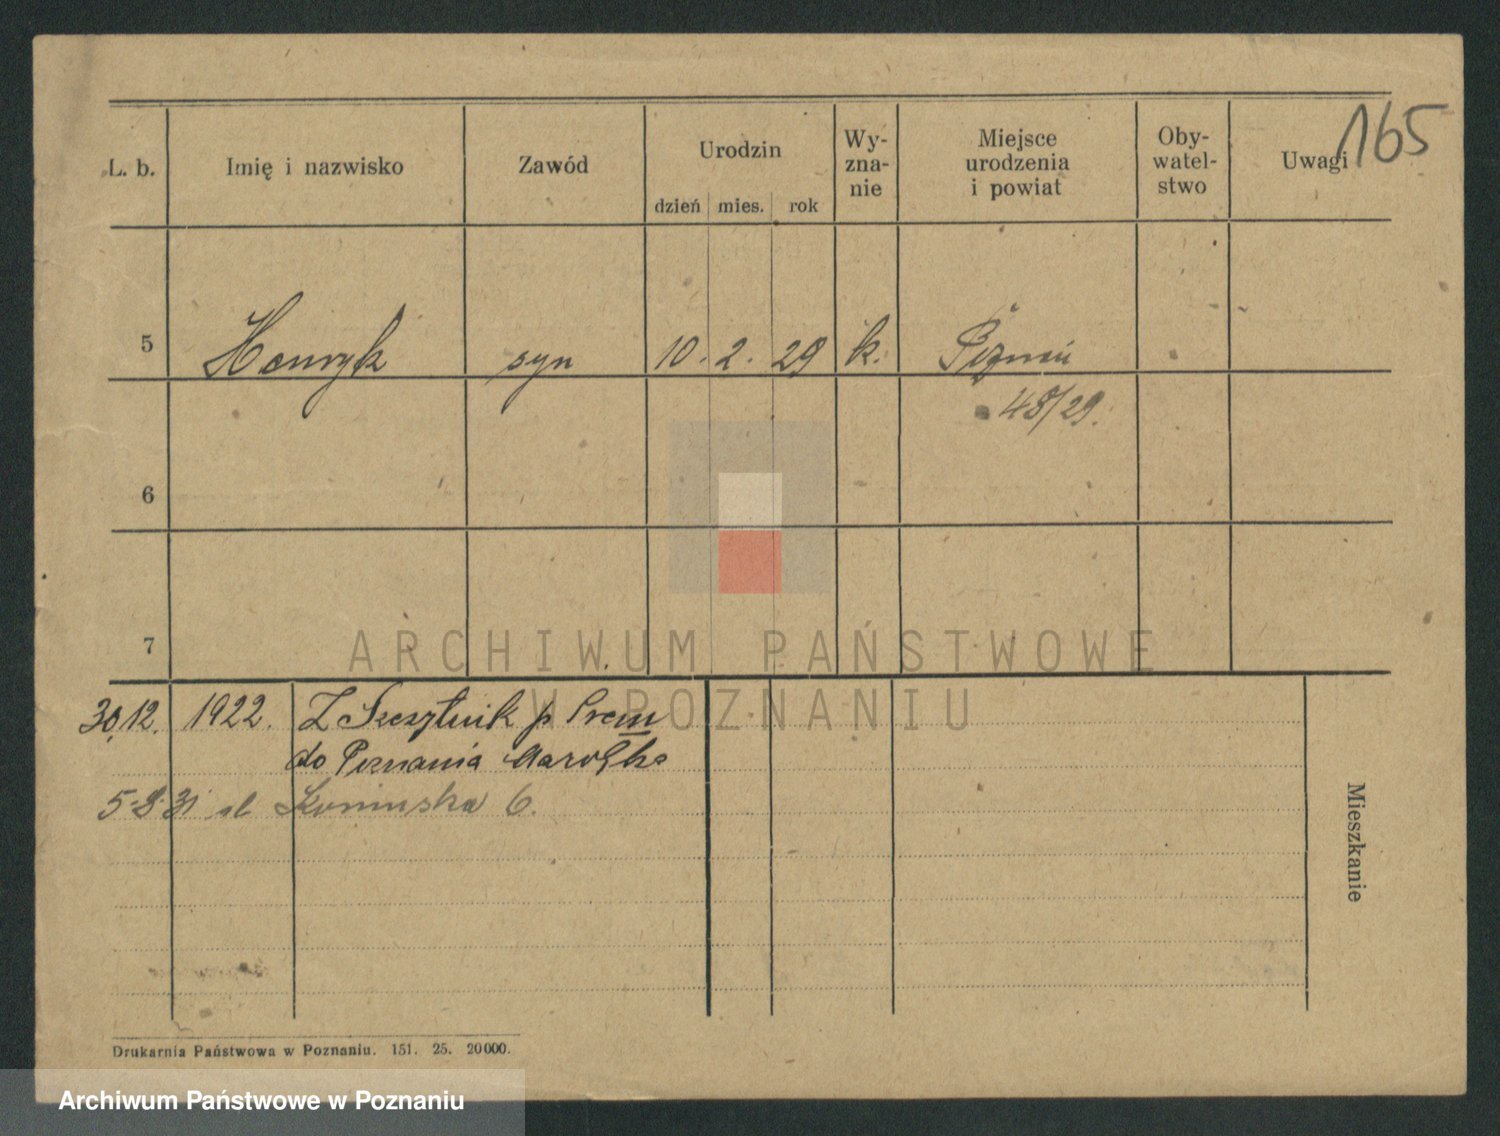 165
L. b. Imię i nazwisko Zawód Urodzin Wy-zna-nie Miejsce urodzenia i powiat Oby-watel-stwo Uwagi
dzień mies. rok
5 Henryk syn 10. 2. 29 k. Poznań
48/29.
6
7
ARCHIWUM PAŃSTWOWE
W POZNANIU
30.12. 1922. Z Szczytnik p Śrem
do Poznania
5.8.31 Koninska 6.
Mieszkanie
Drukarnia Państwowa w Poznaniu. 151. 25. 20000.
Archiwum Państwowe w Poznaniu